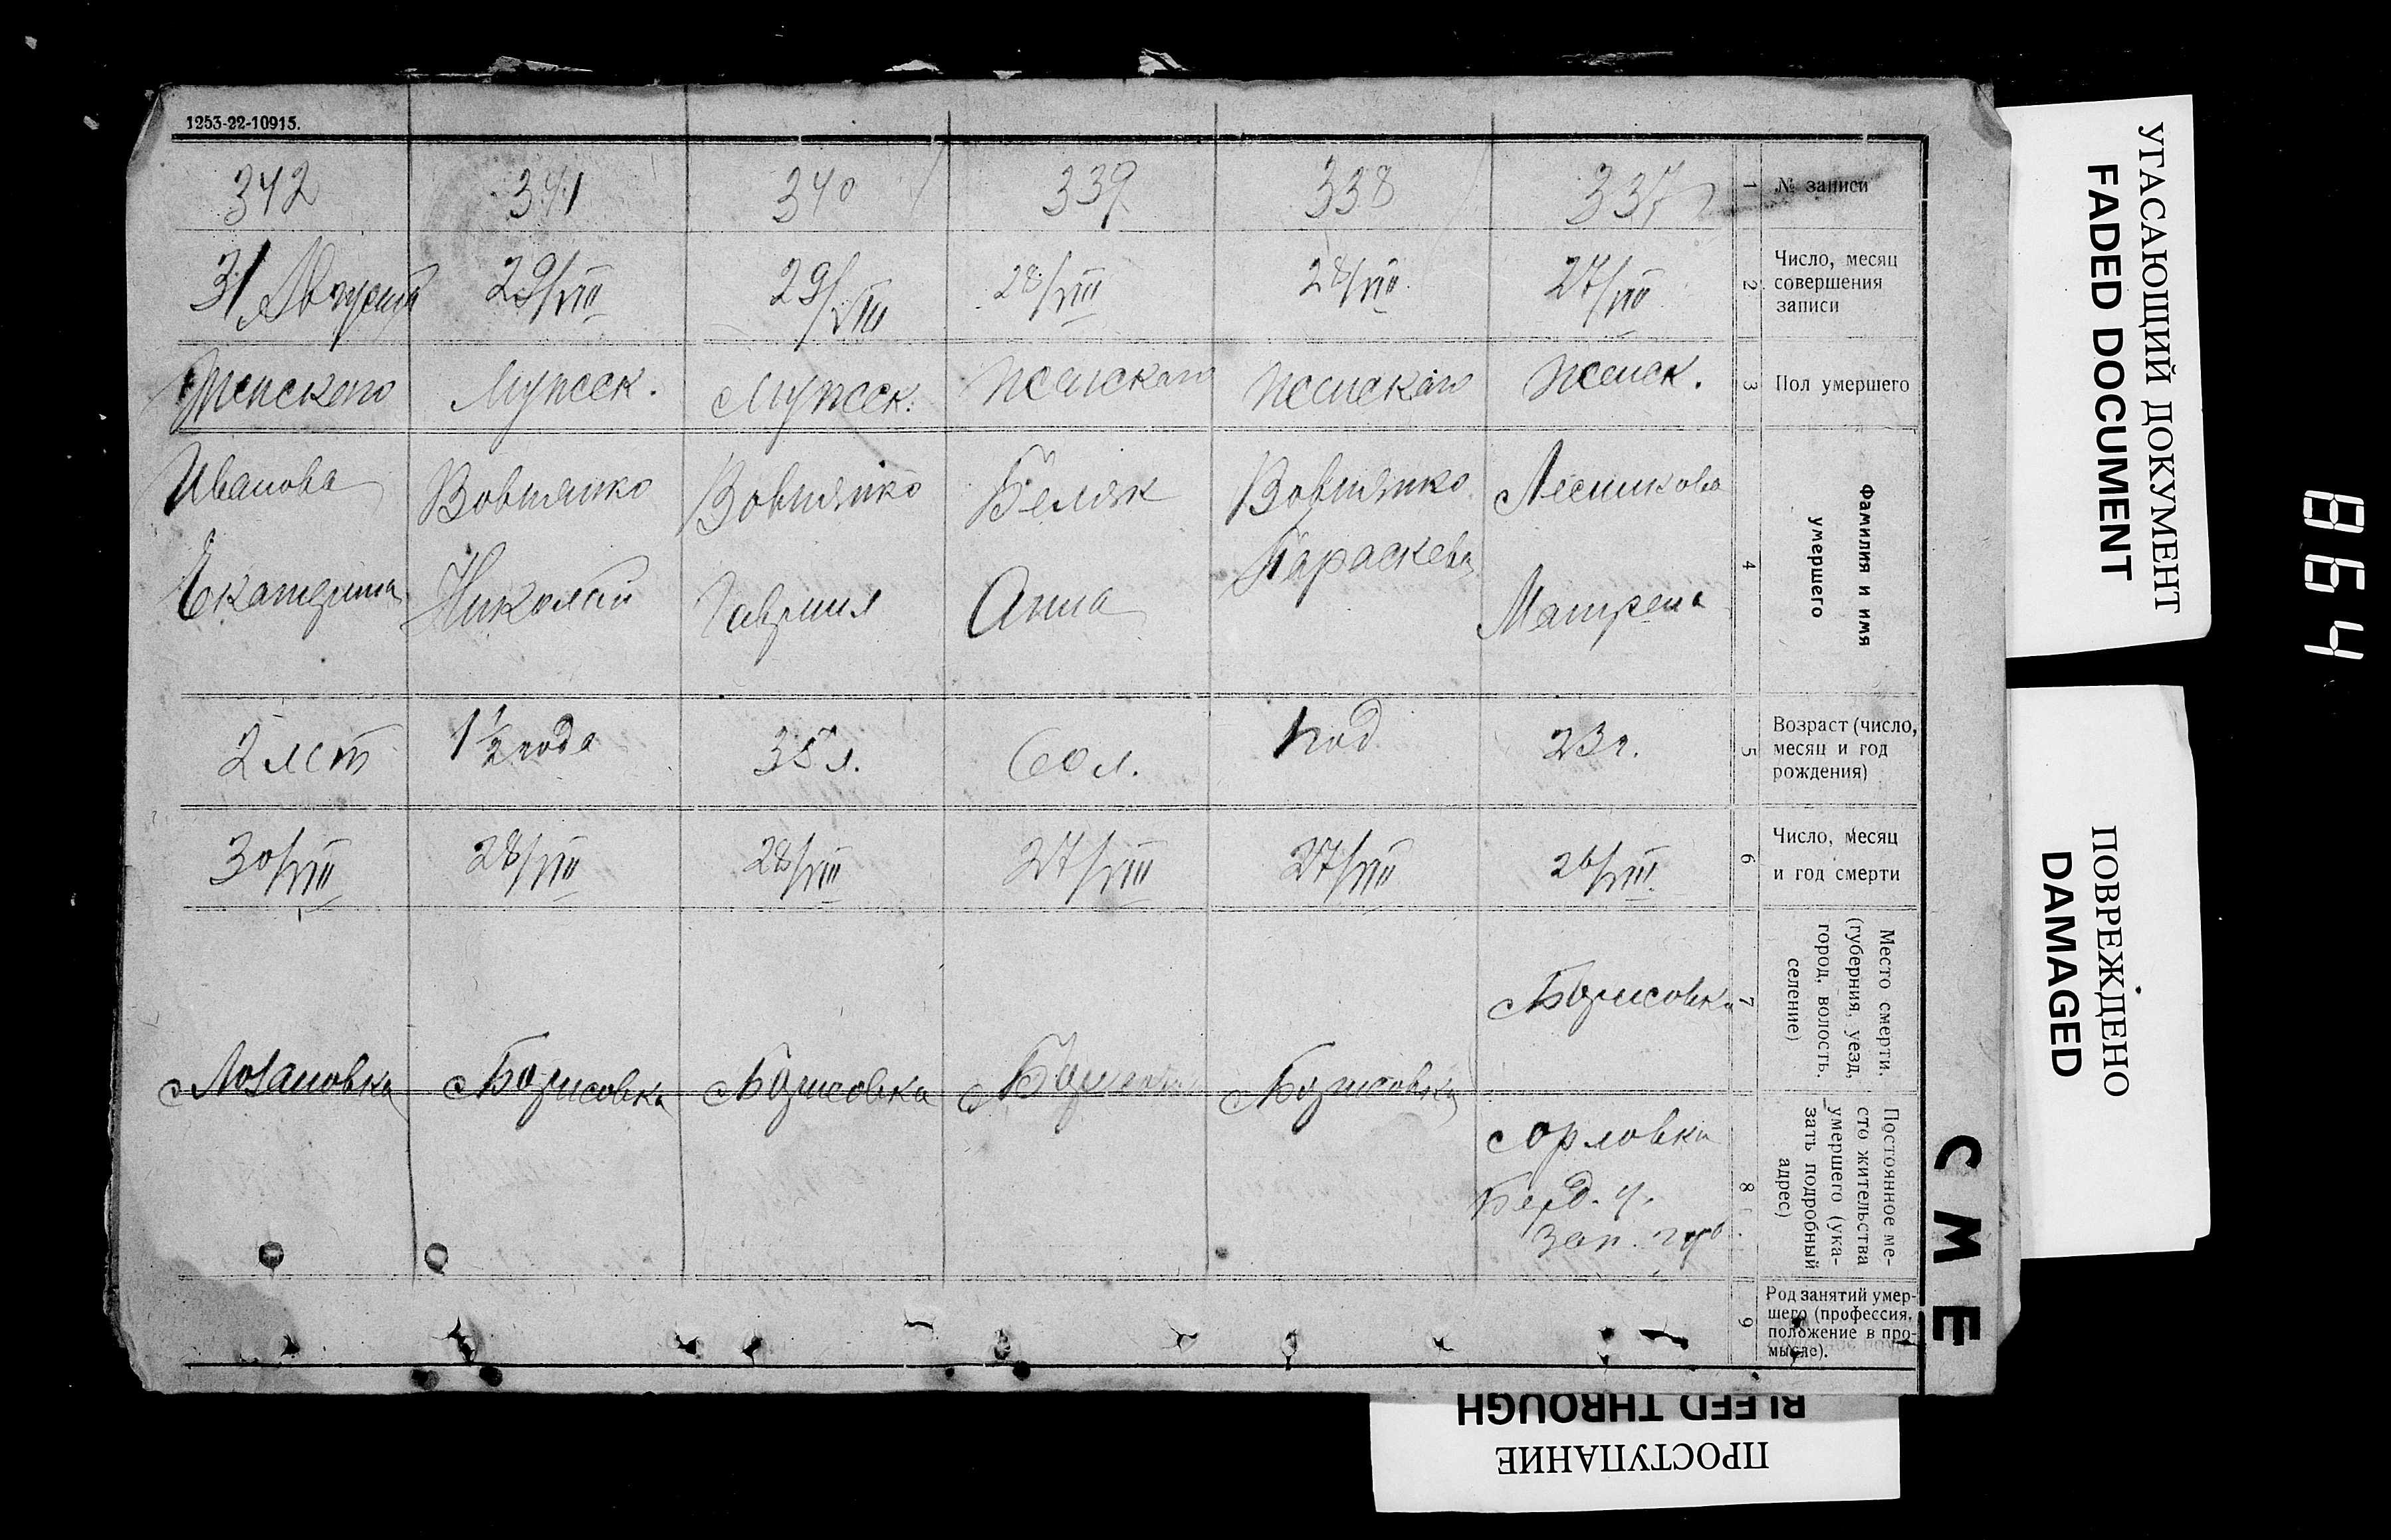 1253-22-10915.
342 341 340 339 338 337 1 № записи
31 Августа 29/VIII 29/VIII 28/VIII 28/VIII 27/VIII 2 Число, месяц
совершения
записи
Женского Мужск. Мужск. Женского Женского Женск. 3 Пол умершего
Иванова Вовнянко Вовнянко Беляк Вовнянко Лесникова
Екатерина Николай Гавриил Анна Параскева Матрена
4 Фамилия и имя
умершего
2 лет 1 1/2 года 35 л. 60 л. 1 год 23 г. 5 Возраст (число,
месяц и год
рождения)
30/VIII 28/VIII 28/VIII 27/VIII 27/VIII 26/VIII 6 Число, месяц
и год смерти
с Лозановка с Борисовка с Борисовка с Борисовка с Борисовка с Борисовка
7 Место смерти,
(губерния, уезд,
город, волость,
селение)
с Орловка
Берд. у.
Зап. губ.
8 Постоянное ме-
сто жительства
умершего (ука-
зать подробный
адрес)
9 Род занятий умер-
шего (профессия,
положение в про-
мысле).
СМЕ
УГАСАЮЩИЙ ДОКУМЕНТ
FADED DOCUMENT
ПОВРЕЖДЕНО
DAMAGED
BLEED THROUGH
ПРОСТУПАНИЕ
864